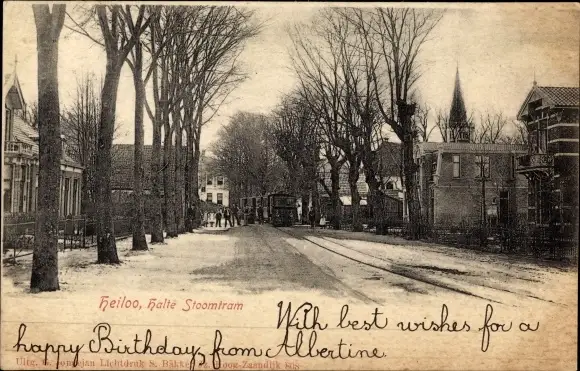 Heiloo, Halte Stoomtram
With best wishes for a
happy Birthday, from Albertine.
Uitg. Lichtdruk S. Bakker Jz. Koog-Zaandijk